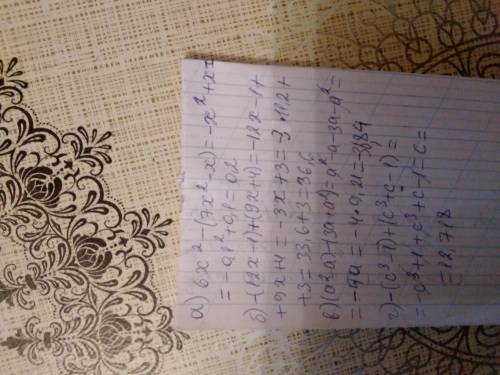 а) 6x² - (7x² - x) = -x² + x =
= -0,1² + 0,1 = 0,2
б) -(12x - 1) + (9x + 4) = -12x - 1 +
+ 9x + 4 = -3x + 3 = 3 · 11,2 +
+ 3 = 33,6 + 3 = 36,6
в) (a² - a) - (3a + a²) = a² - a - 3a - a² =
= -4a = -4 · 0,21 = -0,84
г) -(c³ - 1) + (c³ + c - 1) =
= -c³ + 1 + c³ + c - 1 = c =
= 12,718